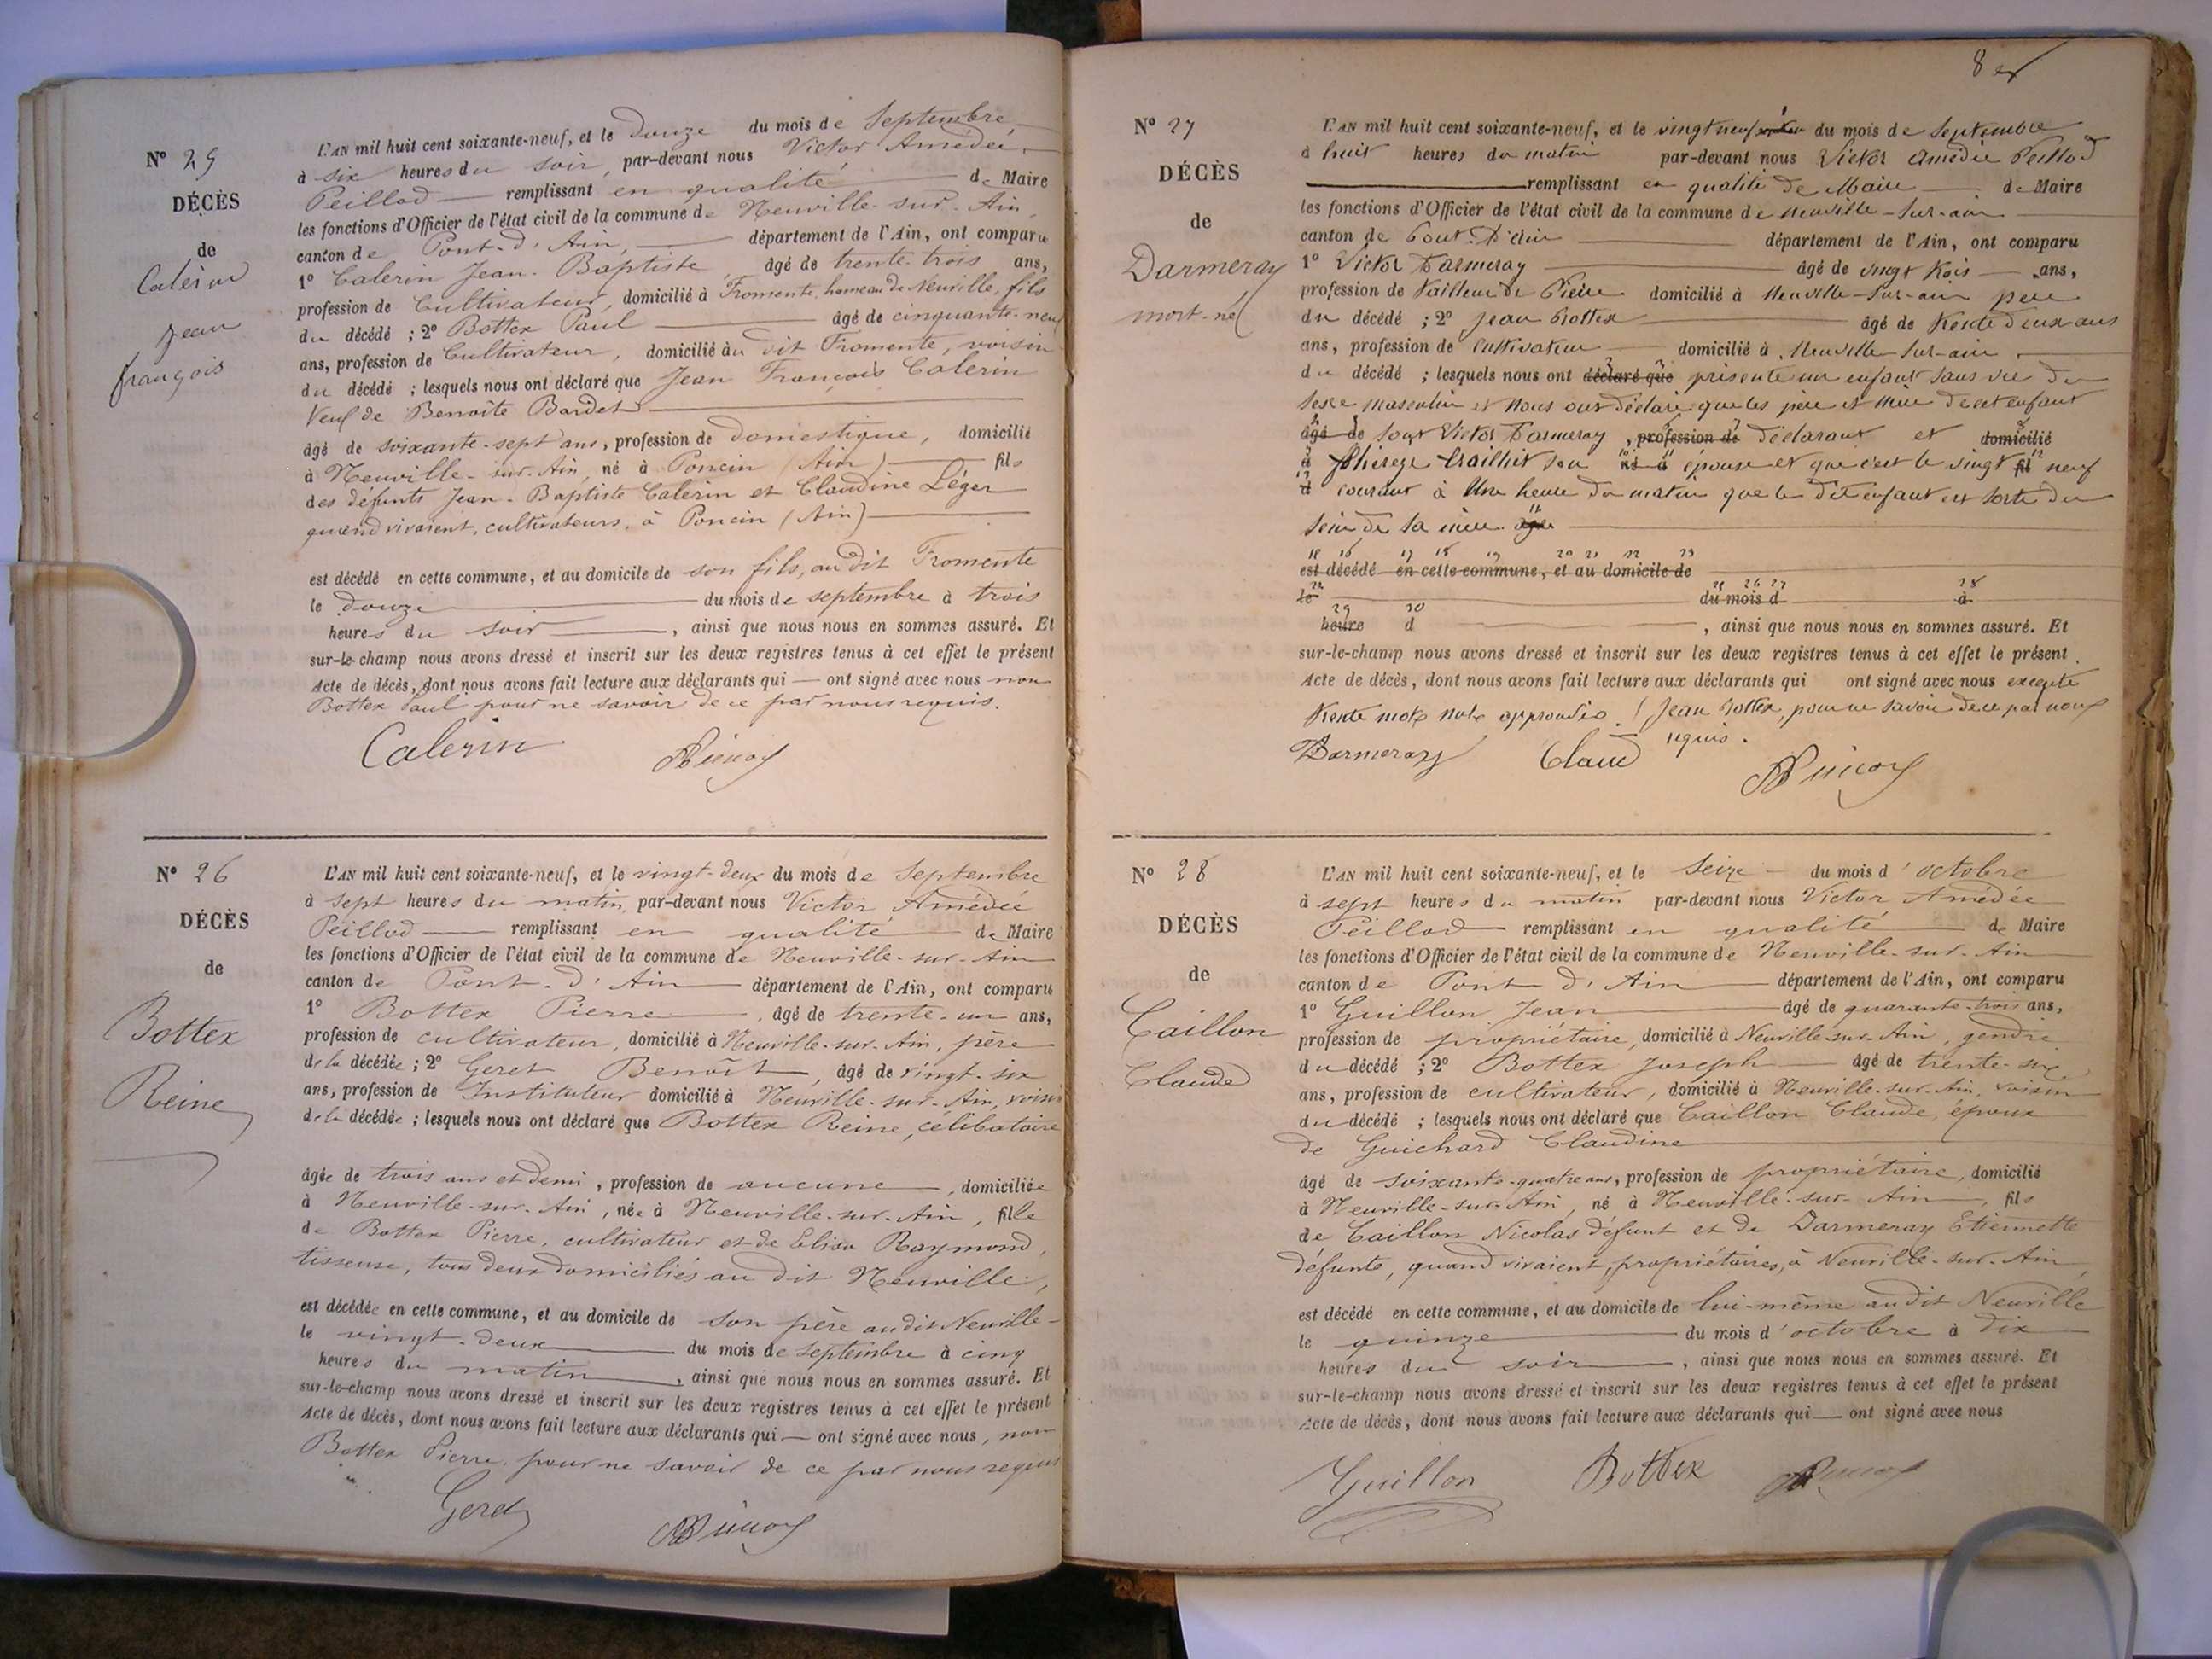 N° 25
DÉCÈS
de
Calerin
Jean
françois
L'AN mil huit cent soixante-neuf, et le douze du mois de Septembre
à six heures du soir, par-devant nous Victor Amédée
Peillod — remplissant en qualité — de Maire
les fonctions d'Officier de l'état civil de la commune de Neuville-sur-Ain,
canton de Pont-d'Ain, — département de l'Ain, ont comparu
1° Calerin Jean-Baptiste âgé de trente-trois ans,
profession de Cultivateur, domicilié à Fromente, hameau de Neuville, fils
du décédé ; 2° Bottex Paul — âgé de cinquante-neuf
ans, profession de Cultivateur, domicilié au dit Fromente, voisin
du décédé ; lesquels nous ont déclaré que Jean François Calerin
Veuf de Benoîte Bardet —
âgé de soixante-sept ans, profession de domestique, domicilié
à Neuville-sur-Ain, né à Poncin (Ain) — fils
des défunts Jean-Baptiste Calerin et Claudine Léger
quand vivaient, cultivateurs, à Poncin (Ain) —
est décédé en cette commune, et au domicile de son fils, au dit Fromente
le douze — du mois de septembre à trois
heures du soir —, ainsi que nous nous en sommes assuré. Et
sur-le-champ nous avons dressé et inscrit sur les deux registres tenus à cet effet le présent
Acte de décès, dont nous avons fait lecture aux déclarants qui — ont signé avec nous non
Bottex Paul pour ne savoir de ce par nous requis.
Calerin
N° 26
DÉCÈS
de
Bottex
Reine
L'AN mil huit cent soixante-neuf, et le vingt-deux du mois de Septembre
à sept heures du matin, par-devant nous Victor Amédée
Peillod — remplissant en qualité — de Maire
les fonctions d'Officier de l'état civil de la commune de Neuville-sur-Ain
canton de Pont-d'Ain — département de l'Ain, ont comparu
1° Bottex Pierre —, âgé de trente-un ans,
profession de cultivateur, domicilié à Neuville-sur-Ain, père
de la décédée ; 2° Geret Benoît, âgé de vingt-six
ans, profession de Instituteur domicilié à Neuville-sur-Ain, voisin
de la décédée ; lesquels nous ont déclaré que Bottex Reine, célibataire
âgée de trois ans et demi, profession de aucune —, domiciliée
à Neuville-sur-Ain, née à Neuville-sur-Ain, fille
de Bottex Pierre, cultivateur et de Elisa Raymond,
tisseuse, tous deux domiciliés au dit Neuville,
est décédée en cette commune, et au domicile de son père audit Neuville-
le vingt-deux — du mois de septembre à cinq
heures du matin —, ainsi que nous nous en sommes assuré. Et
sur-le-champ nous avons dressé et inscrit sur les deux registres tenus à cet effet le présent
Acte de décès, dont nous avons fait lecture aux déclarants qui — ont signé avec nous, non
Bottex Pierre pour ne savoir de ce par nous requis
Geret
8
N° 27
DÉCÈS
de
Darmeray
mort-né
L'AN mil huit cent soixante-neuf, et le vingt neuf du mois de Septembre
à huit heures du matin par-devant nous Victor amédée Peillod
— remplissant en qualité de Maire — de Maire
les fonctions d'Officier de l'état civil de la commune de Neuville-sur-ain —
canton de Pont-d'ain — département de l'Ain, ont comparu
1° Victor Darmeray — âgé de vingt trois — ans,
profession de tailleur de Pierre domicilié à Neuville-sur-ain père
du décédé ; 2° Jean Bottex — âgé de trente deux ans
ans, profession de cultivateur — domicilié à Neuville-sur-ain —
du décédé ; lesquels nous ont déclaré que présenté un enfant sans vie du
sexe masculin et nous ont déclaré que les père et mère de cet enfant
âgé de sont Victor Darmeray, profession de déclarant et domicilié
à né à épouse et que c'est le vingt fil neuf
d courant à Une heure du matin que le dit enfant est sorti du
sein de sa mère —
15 16 17 18 19 20 21 22 23
est décédé en cette commune, et au domicile de —
le — du mois d — à
29 30
heure d —, ainsi que nous nous en sommes assuré. Et
sur-le-champ nous avons dressé et inscrit sur les deux registres tenus à cet effet le présent
Acte de décès, dont nous avons fait lecture aux déclarants qui ont signé avec nous excepté
trente mots nuls approuvés. Jean Bottex, pour ne savoir de ce par nous
requis.
Darmeray
N° 28
DÉCÈS
de
Caillon
Claude
L'AN mil huit cent soixante-neuf, et le Seize — du mois d'octobre
à sept heures du matin par-devant nous Victor Amédée
Peillod — remplissant en qualité — de Maire
les fonctions d'Officier de l'état civil de la commune de Neuville-sur-Ain
canton de Pont d'Ain — département de l'Ain, ont comparu
1° Guillon Jean — âgé de quarante-trois ans,
profession de propriétaire, domicilié à Neuville-sur-Ain, gendre
du décédé ; 2° Bottex Joseph — âgé de trente-six
ans, profession de cultivateur, domicilié à Neuville-sur-Ain, voisin
du décédé ; lesquels nous ont déclaré que Caillon Claude, époux
de Guichard Claudine —
âgé de soixante-quatre ans, profession de propriétaire, domicilié
à Neuville-sur-Ain, né à Neuville-sur-Ain —, fils
de Caillon Nicolas défunt et de Darmeray Etiennette
défunte, quand vivaient, propriétaires, à Neuville-sur-Ain,
est décédé en cette commune, et au domicile de lui-même audit Neuville
le quinze — du mois d'octobre à dix
heures du soir —, ainsi que nous nous en sommes assuré. Et
sur-le-champ nous avons dressé et inscrit sur les deux registres tenus à cet effet le présent
Acte de décès, dont nous avons fait lecture aux déclarants qui — ont signé avec nous
Guillon Bottex